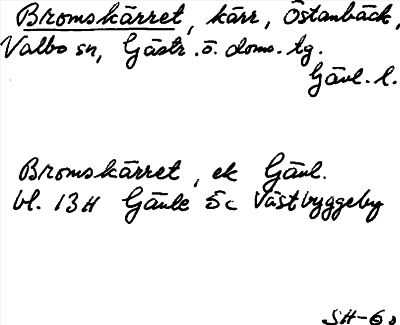 Bromskärret, kärr, Östanbäck,
Valbo sn, Gästr. ö. doms. tg.
Gävl. l.
Bromskärret, ek Gävl.
bl. 13H Gävle 5c Västbyggeby
SH-6